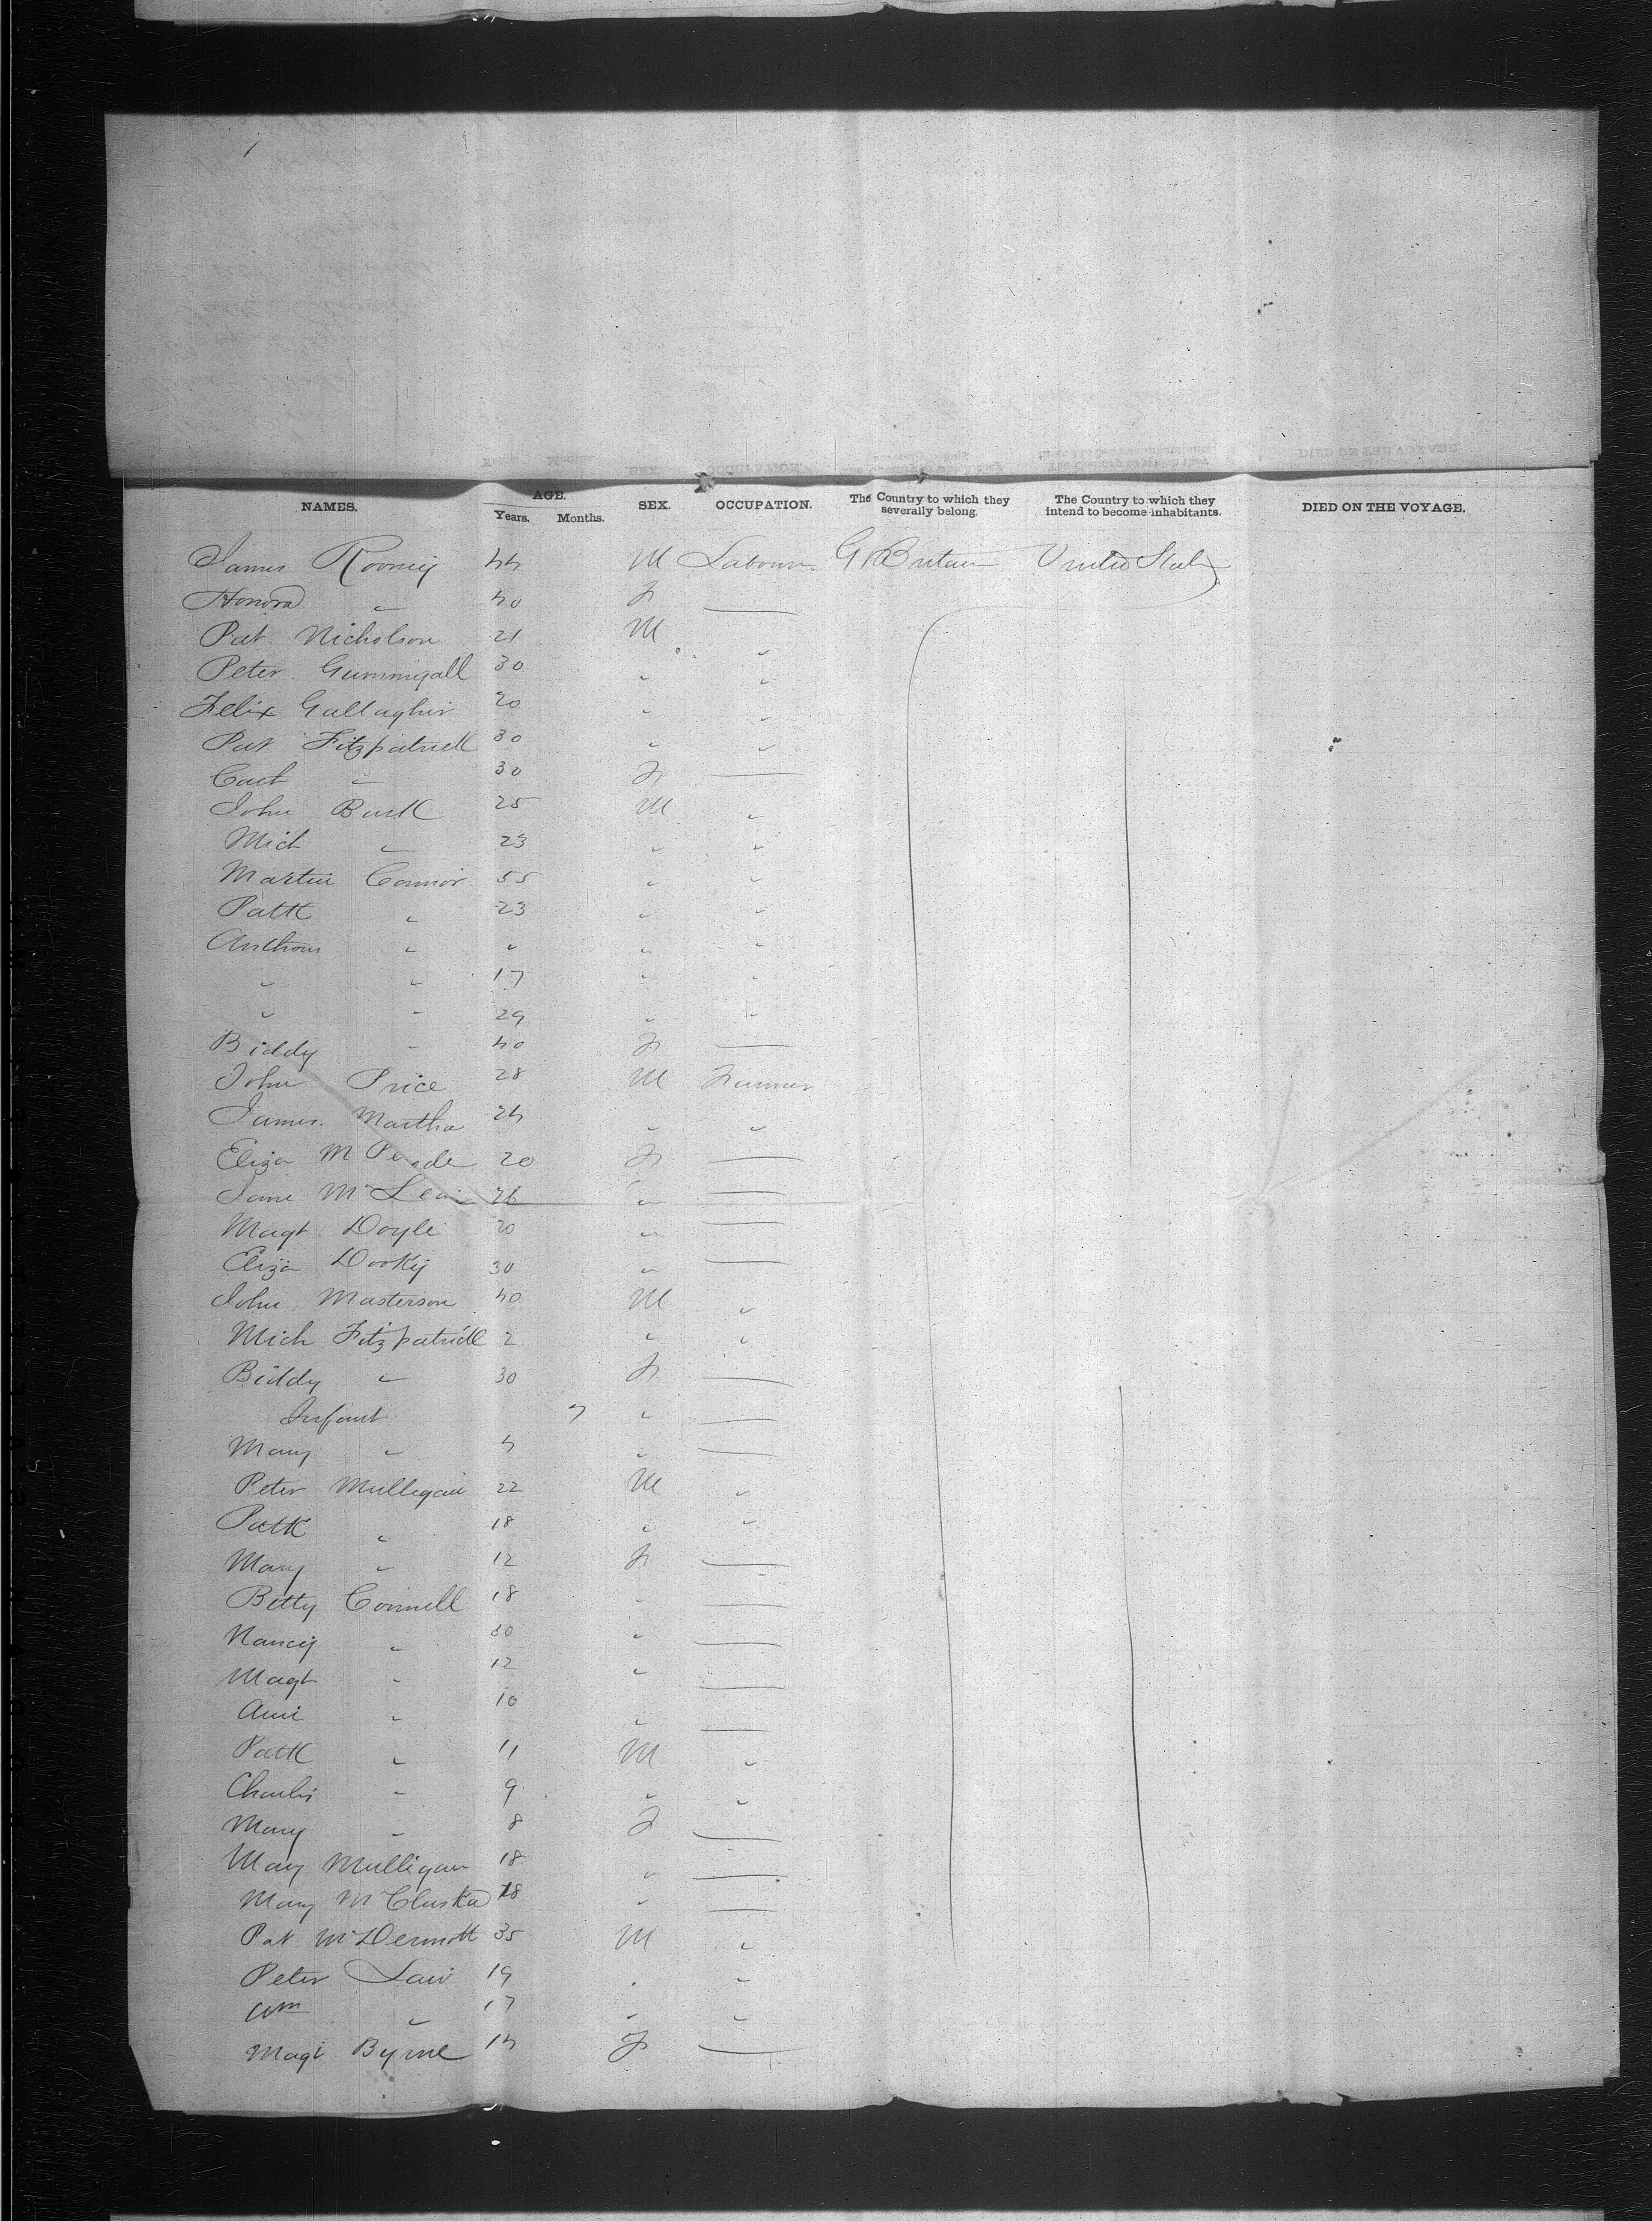 NAMES. AGE. Years. Months. SEX. OCCUPATION. The Country to which they severally belong. The Country to which they intend to become inhabitants. DIED ON THE VOYAGE.
James Rooney 44 M Labourer Gt Britain United States
Honora " 40 F —
Pat Nicholson 21 M "
Peter Gummigall 30 " "
Felix Gallagher 20 " "
Pat Fitzpatrick 30 " "
Cath " 30 F —
John Burk 25 M "
Mich " 23 " "
Martin Connor 55 " "
Patk " 23 " "
Anthony " " " "
" " 17 " "
" " 29 " "
Biddy " 40 F —
John Price 28 M Farmer
James Martha 24 " "
Eliza M 20 F —
Jane Mc 26 " —
Magt Doyle 20 " —
Eliza Dooky 30 " —
John Masterson 40 M "
Mich Fitzpatrick 2 " "
Biddy " 30 F —
Infant 7 " —
Mary " 4 " —
Peter Mulligan 22 M "
Patk " 18 " "
Mary " 12 F —
Betty Connell 18 " —
Nancy " 30 " —
Magt " 12 " —
Ann " 10 " —
Patk " 11 M "
Charles " 9 " "
Mary " 8 F —
Mary Mulligan 18 " —
Mary McCluska 18 " —
Pat McDermott 35 M "
Peter Law 19 " "
Wm " 17 " "
Magt Byrne 14 F —